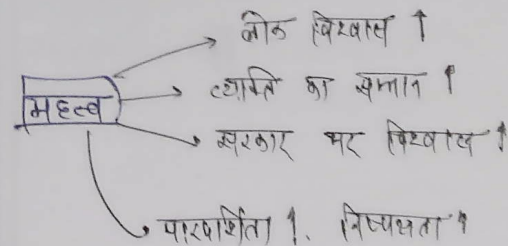 लोक विश्वास ↑
व्यक्ति का सम्मान ↑
महत्व
सरकार पर विश्वास ↑
पारदर्शिता ↑. निष्पक्षता ↑